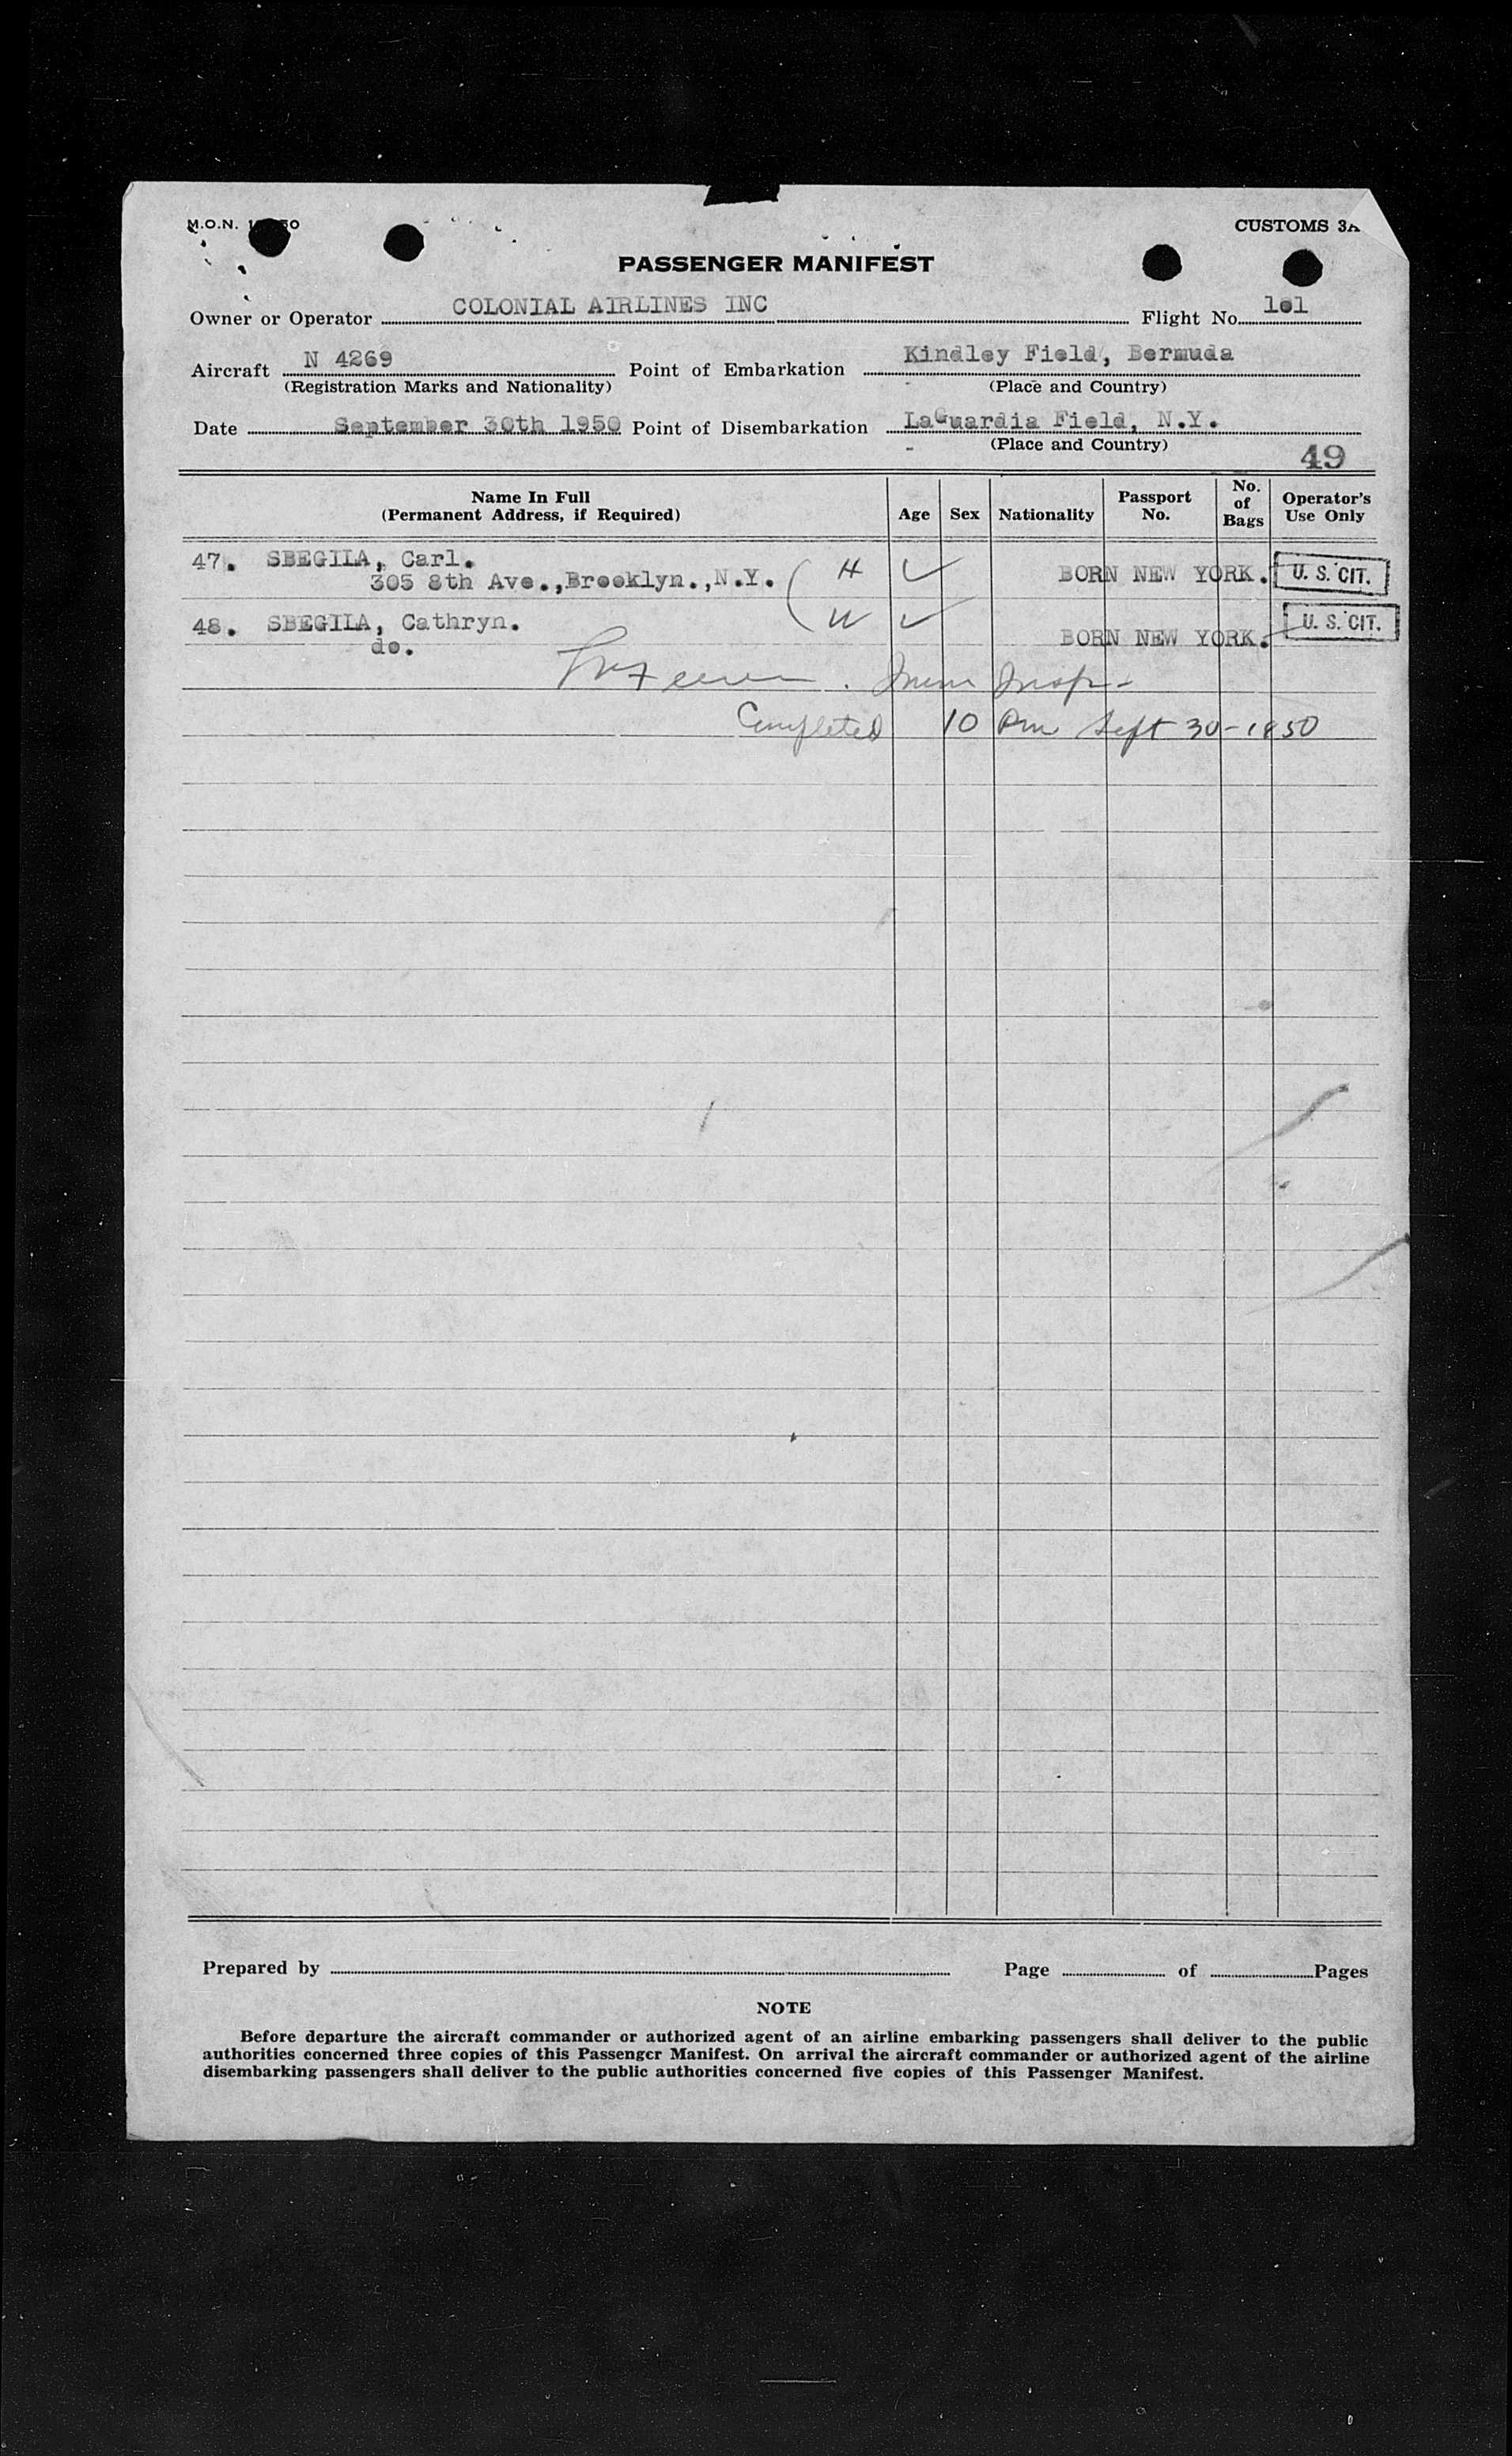 M.O.N.
CUSTOMS 3A
PASSENGER MANIFEST
Owner or Operator COLONIAL AIRLINES INC Flight No. 1o1
Aircraft N 4269 Point of Embarkation Kindley Field, Bermuda
(Registration Marks and Nationality) (Place and Country)
Date September 30th 1950 Point of Disembarkation LaGuardia Field, N.Y.
(Place and Country)
49
Name In Full (Permanent Address, if Required) Age Sex Nationality Passport No. No. of Bags Operator's Use Only
47. SBEGILA, Carl.
305 8th Ave.,Brooklyn.,N.Y. H BORN NEW YORK. U. S. CIT.
48. SBEGILA, Cathryn. W U. S. CIT.
do. BORN NEW YORK.
Imm Insp-
Completed 10 Pm Sept 30-1950
Prepared by Page of Pages
NOTE
Before departure the aircraft commander or authorized agent of an airline embarking passengers shall deliver to the public
authorities concerned three copies of this Passenger Manifest. On arrival the aircraft commander or authorized agent of the airline
disembarking passengers shall deliver to the public authorities concerned five copies of this Passenger Manifest.